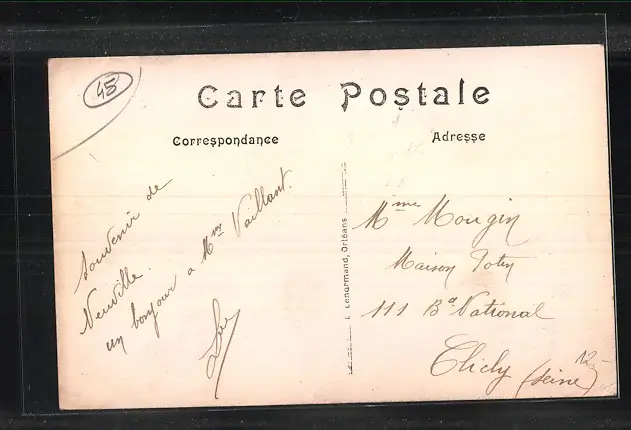 45
Carte Postale
Correspondance
Adresse
souvenir de
Neuville.
un bonjour a Mme Vaillant.
L. Lenormand, Orléans
Mme Mougin
Maison Potin
111 Bd National
Clichy (Seine)
12-